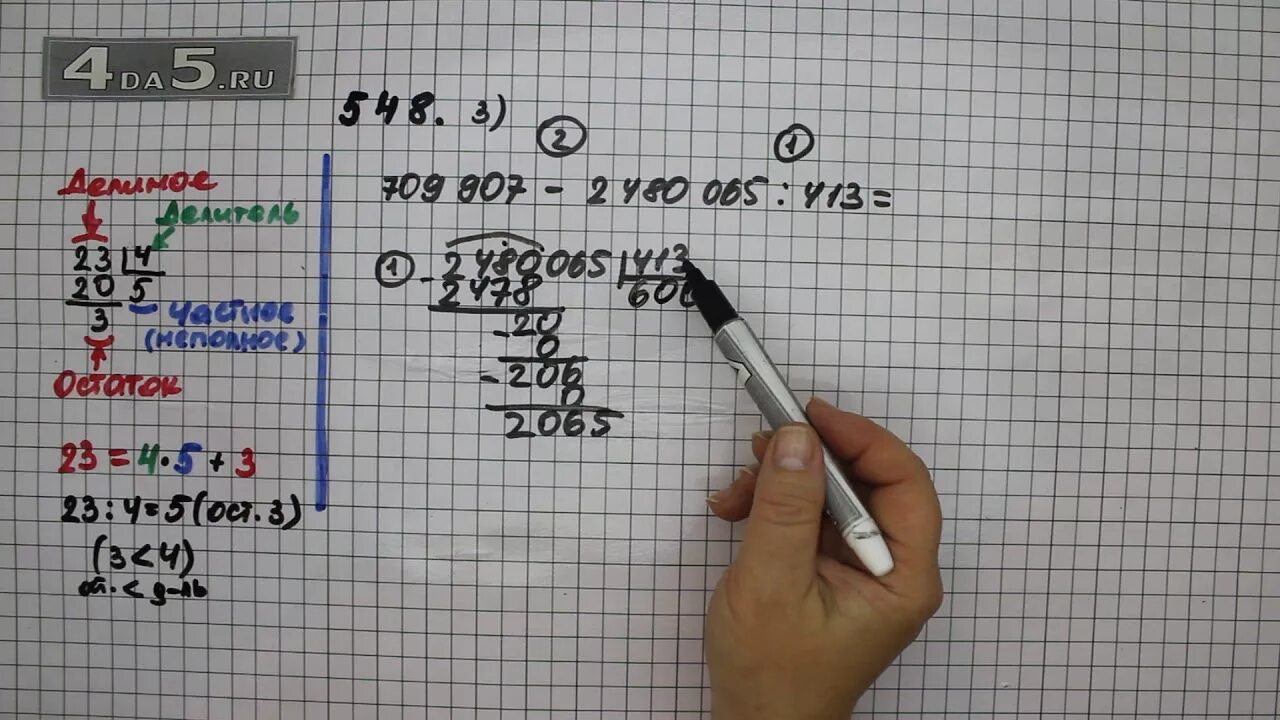 4DA5.RU
548. 3)
2 1
709 907 - 2 480 065 : 413 =
Делимое
Делитель
23 4
20 5
3
Частное
(неполное)
Остаток
23 = 4 · 5 + 3
23 : 4 = 5 (ост. 3)
(3 < 4)
ост. < д-ль
1 2480065 413
- 2478 600
- 20
0
- 206
0
2065